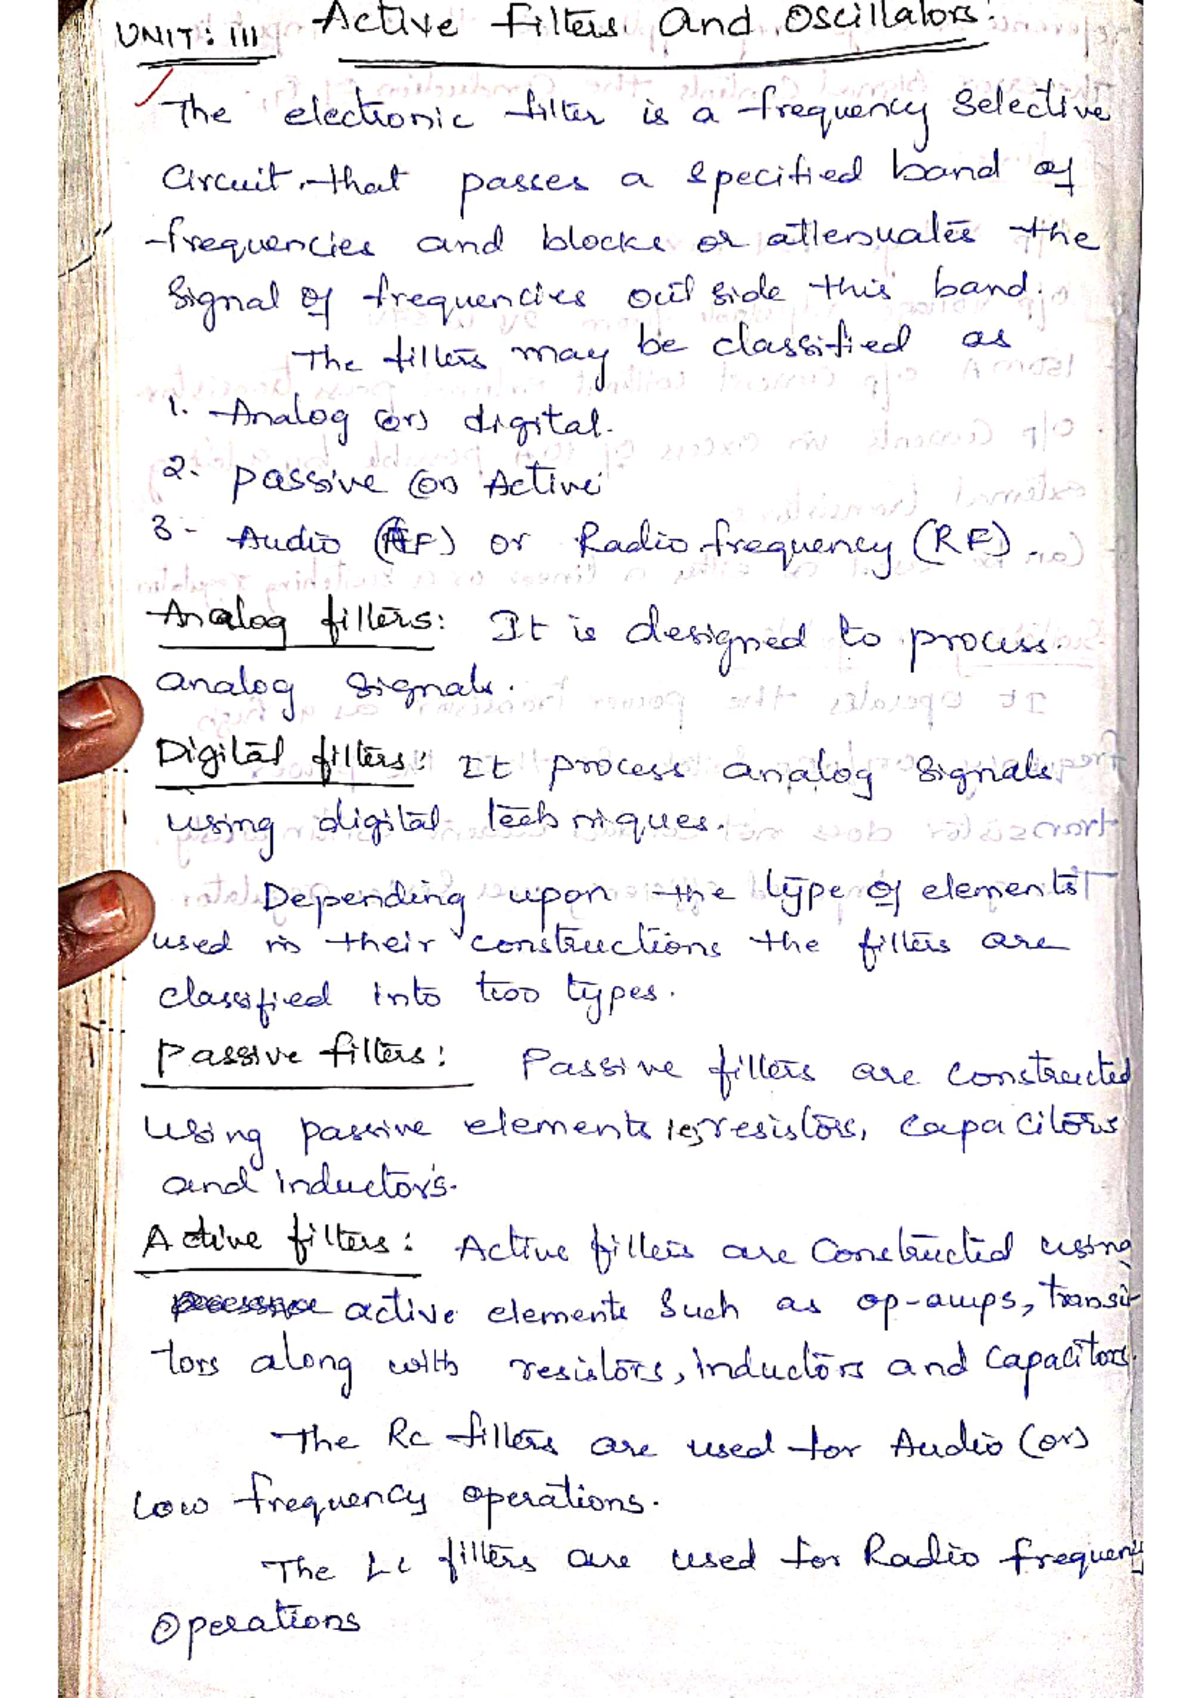 UNIT: III Active Filters and Oscillators:
The electronic filter is a frequency selective
Circuit, that passes a specified band of
frequencies and blocks or attenuates the
signal of frequencies out side this band.
The filters may be classified as
1. Analog (or) digital.
2. passive (or) Active
3- Audio (AF) or Radio frequency (RF).
Analog filters: It is designed to process
analog signals.
Digital filters: It process analog signals
using digital techniques.
Depending upon the type of elements
used in their constructions the filters are
classified into two types.
Passive filters: Passive filters are constructed
using passive elements resistors, capacitors
and inductors.
Active filters: Active filters are constructed using
active elements such as op-amps, transis-
tors along with resistors, inductors and capacitors.
The RC filters are used for Audio (or)
low frequency operations.
The LC filters are used for Radio frequency
Operations